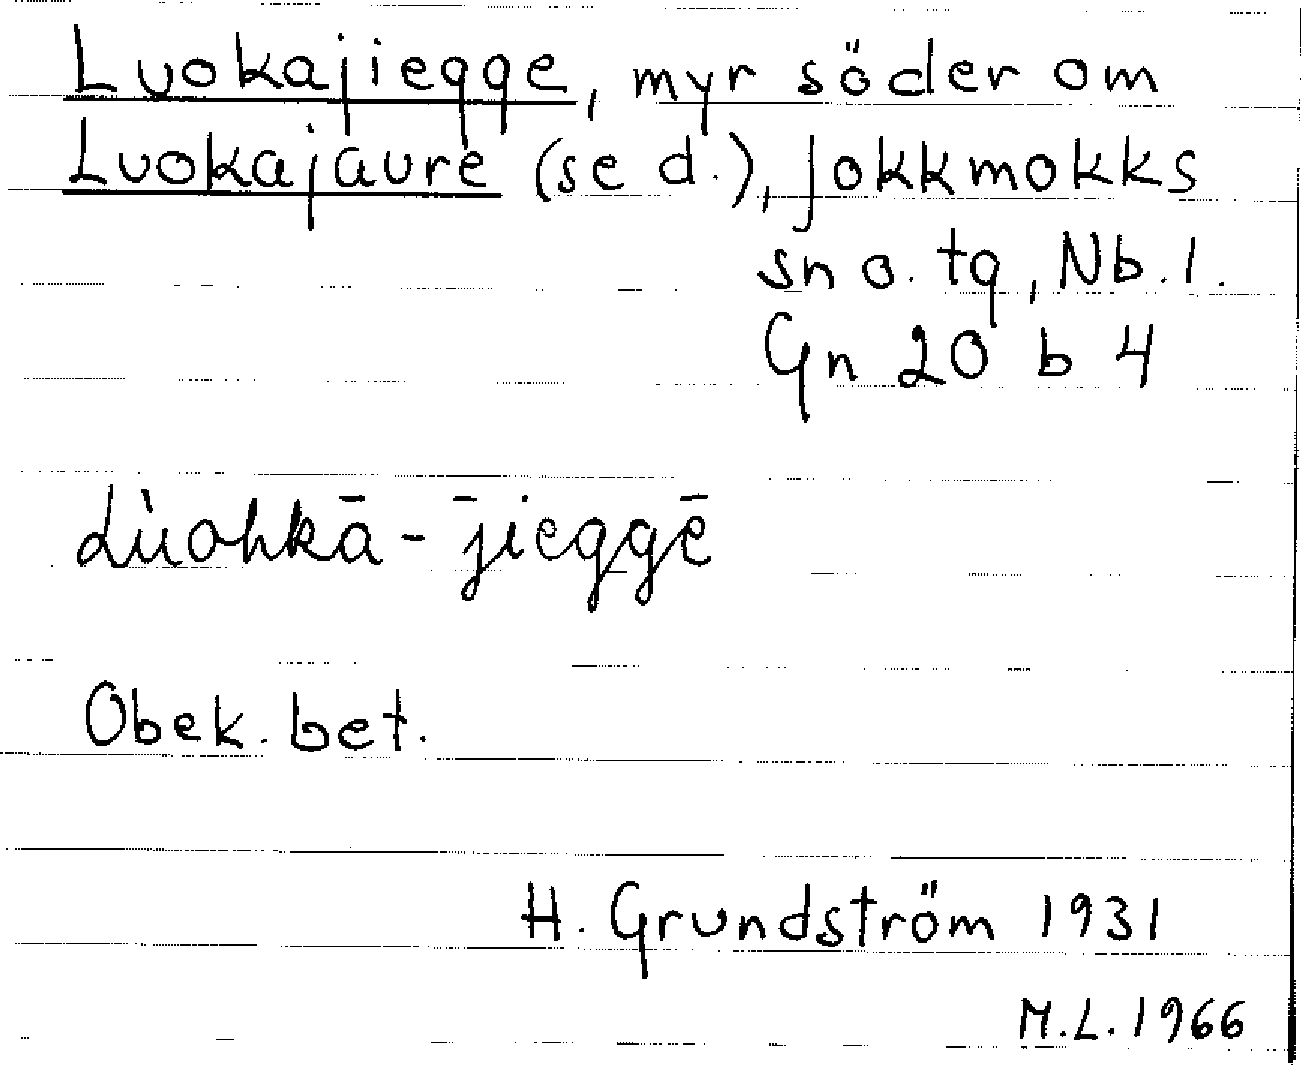 Luokajiegge, myr söder om
Luokajaure (se d.), Jokkmokks
sn o. tg, Nb. l.
Gn 20 b 4
Lùohkā-j̄ieggē
Obek. bet.
H. Grundström 1931
M.L. 1966